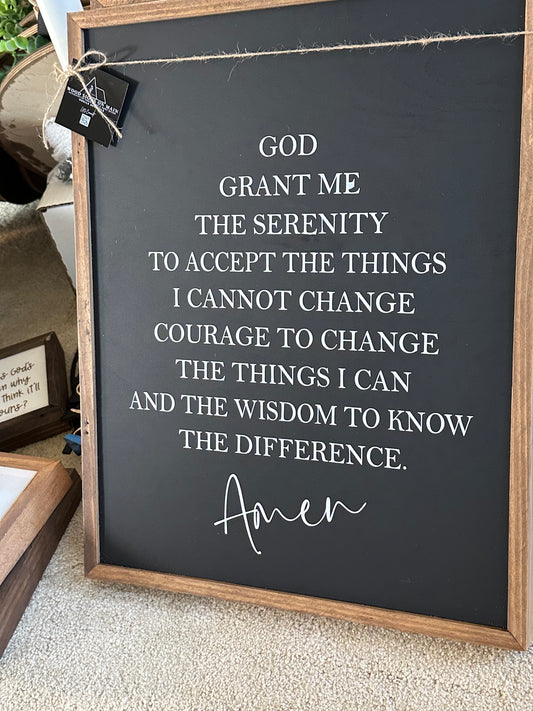 GOD
GRANT ME
THE SERENITY
TO ACCEPT THE THINGS
I CANNOT CHANGE
COURAGE TO CHANGE
THE THINGS I CAN
AND THE WISDOM TO KNOW
THE DIFFERENCE.
Amen
God's
why
think it'll